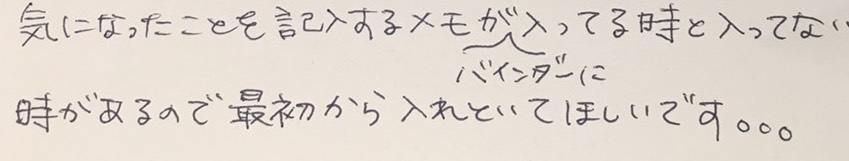 気になったことを記入するメモが入ってる時と入ってない
バインダーに
時があるので最初から入れといてほしいです。。。